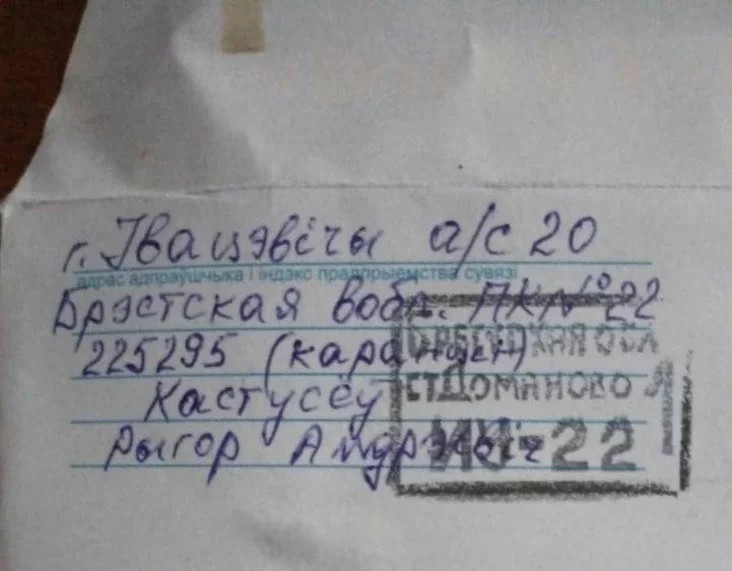 г. Івацэвічы а/с 20
адрас адпраўшчыка і індэкс прадпрыемства сувязі
Брэсткая вобл. ПК №22
225295 (каранцін)
Кастусёў
Рыгор Андрэевіч
БРЕСТСКАЯ ОБЛ
СТ ДОМАНОВО
ИК-22